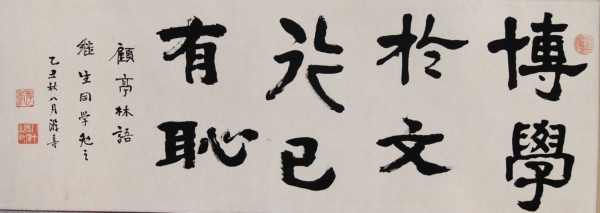 博學
於文
行己
有恥
顧亭林語
繼生同学勉之
乙丑秋八月游壽